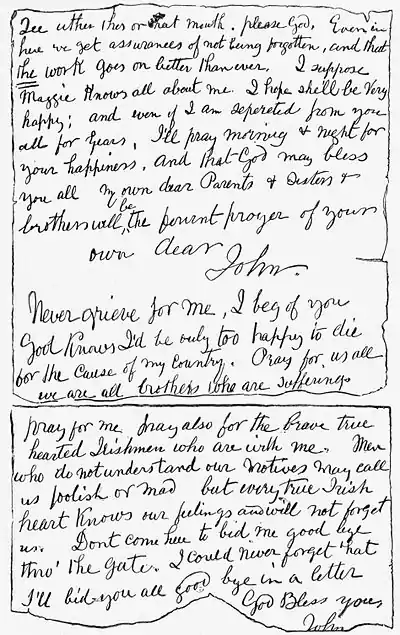 See either this or that month. please God. Even in
here we get assurances of not being forgotten, and that
the work goes on better than ever. I suppose
Maggie Knows all about me. I hope she'll be Very
happy; and even if I am seperated from you
all for years, I'll pray morning & night for
your happiness. And that God may bless
you all my own dear Parents & Sisters &
brothers will be the fervent prayer of yours
own dear
John.
Never grieve for me, I beg of you
God Knows I'd be only too happy to die
for the cause of my Country. Pray for us all
we are all brothers who are suffering
pray for me pray also for the brave true
hearted Irishmen who are with me. Men
who do not understand our motives may call
us foolish or mad but every true Irish
heart Knows our feelings and will not forget
us. Dont come here to bid me good bye
thro' the gate. I could never forget that
I'll bid you all good bye in a letter
God Bless yous
John